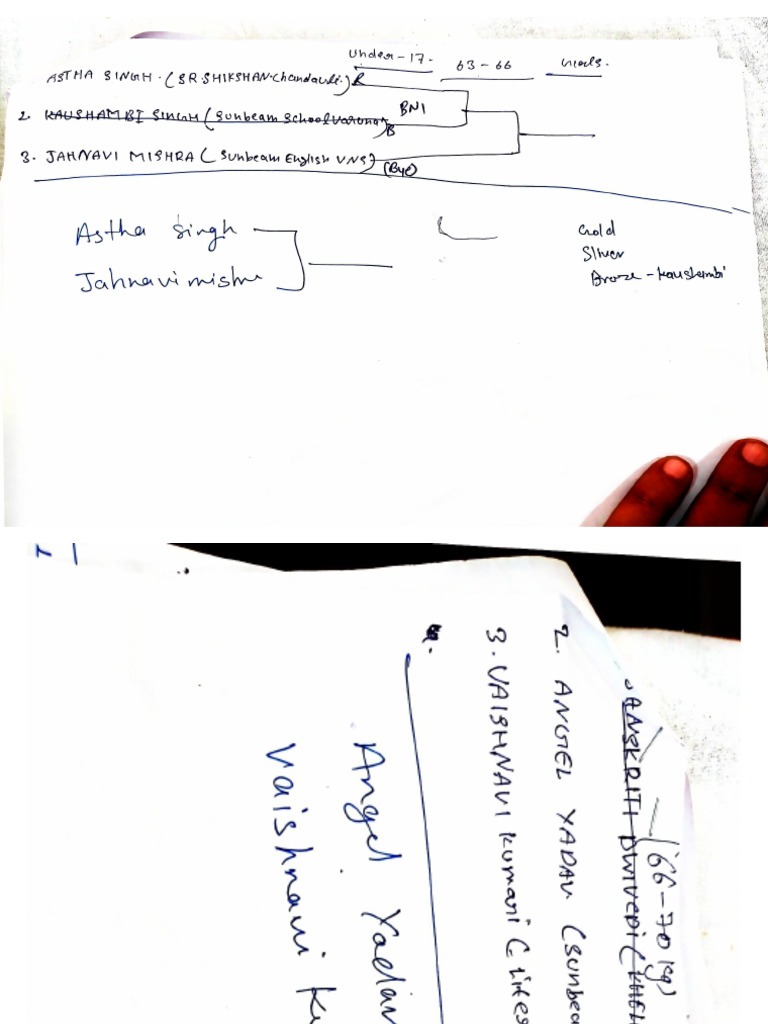 Under-17. 63-66 Girls.
ASTHA SINGH. (S.R.SHIKSHAN. Chandauli.) R
2. KAUSHAMBI SINGH (Sunbeam School Varuna) B
BNI
3. JAHNAVI MISHRA (Sunbeam English VNS)
(Bye)
Astha Singh
Jahnavi mishra
Gold
Silver
Bronze - Kaushambi
(66-70 kg)
SANSKRITI DWIVEDI (
2. ANGEL YADAV (Sunbea
3. VAISHNAVI Kumari (
Angel Yadav
Vaishnavi Ku